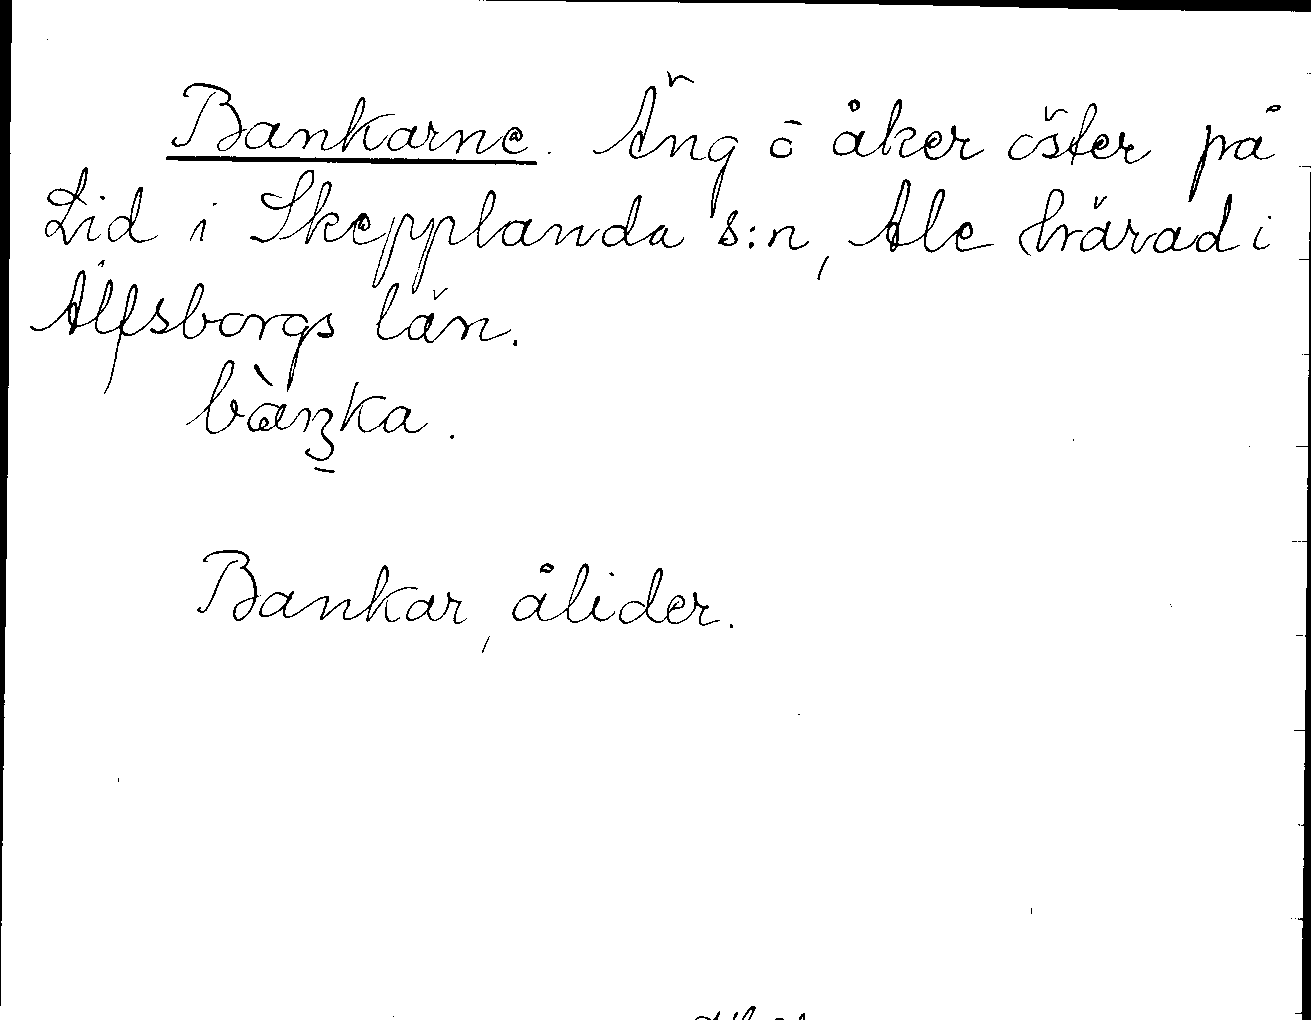 Bankarne. Äng ö åker öster på
Lid i Skepplanda s:n, Ale härad i
Älfsborgs län.
bàŋka.
Bankar, ålider.